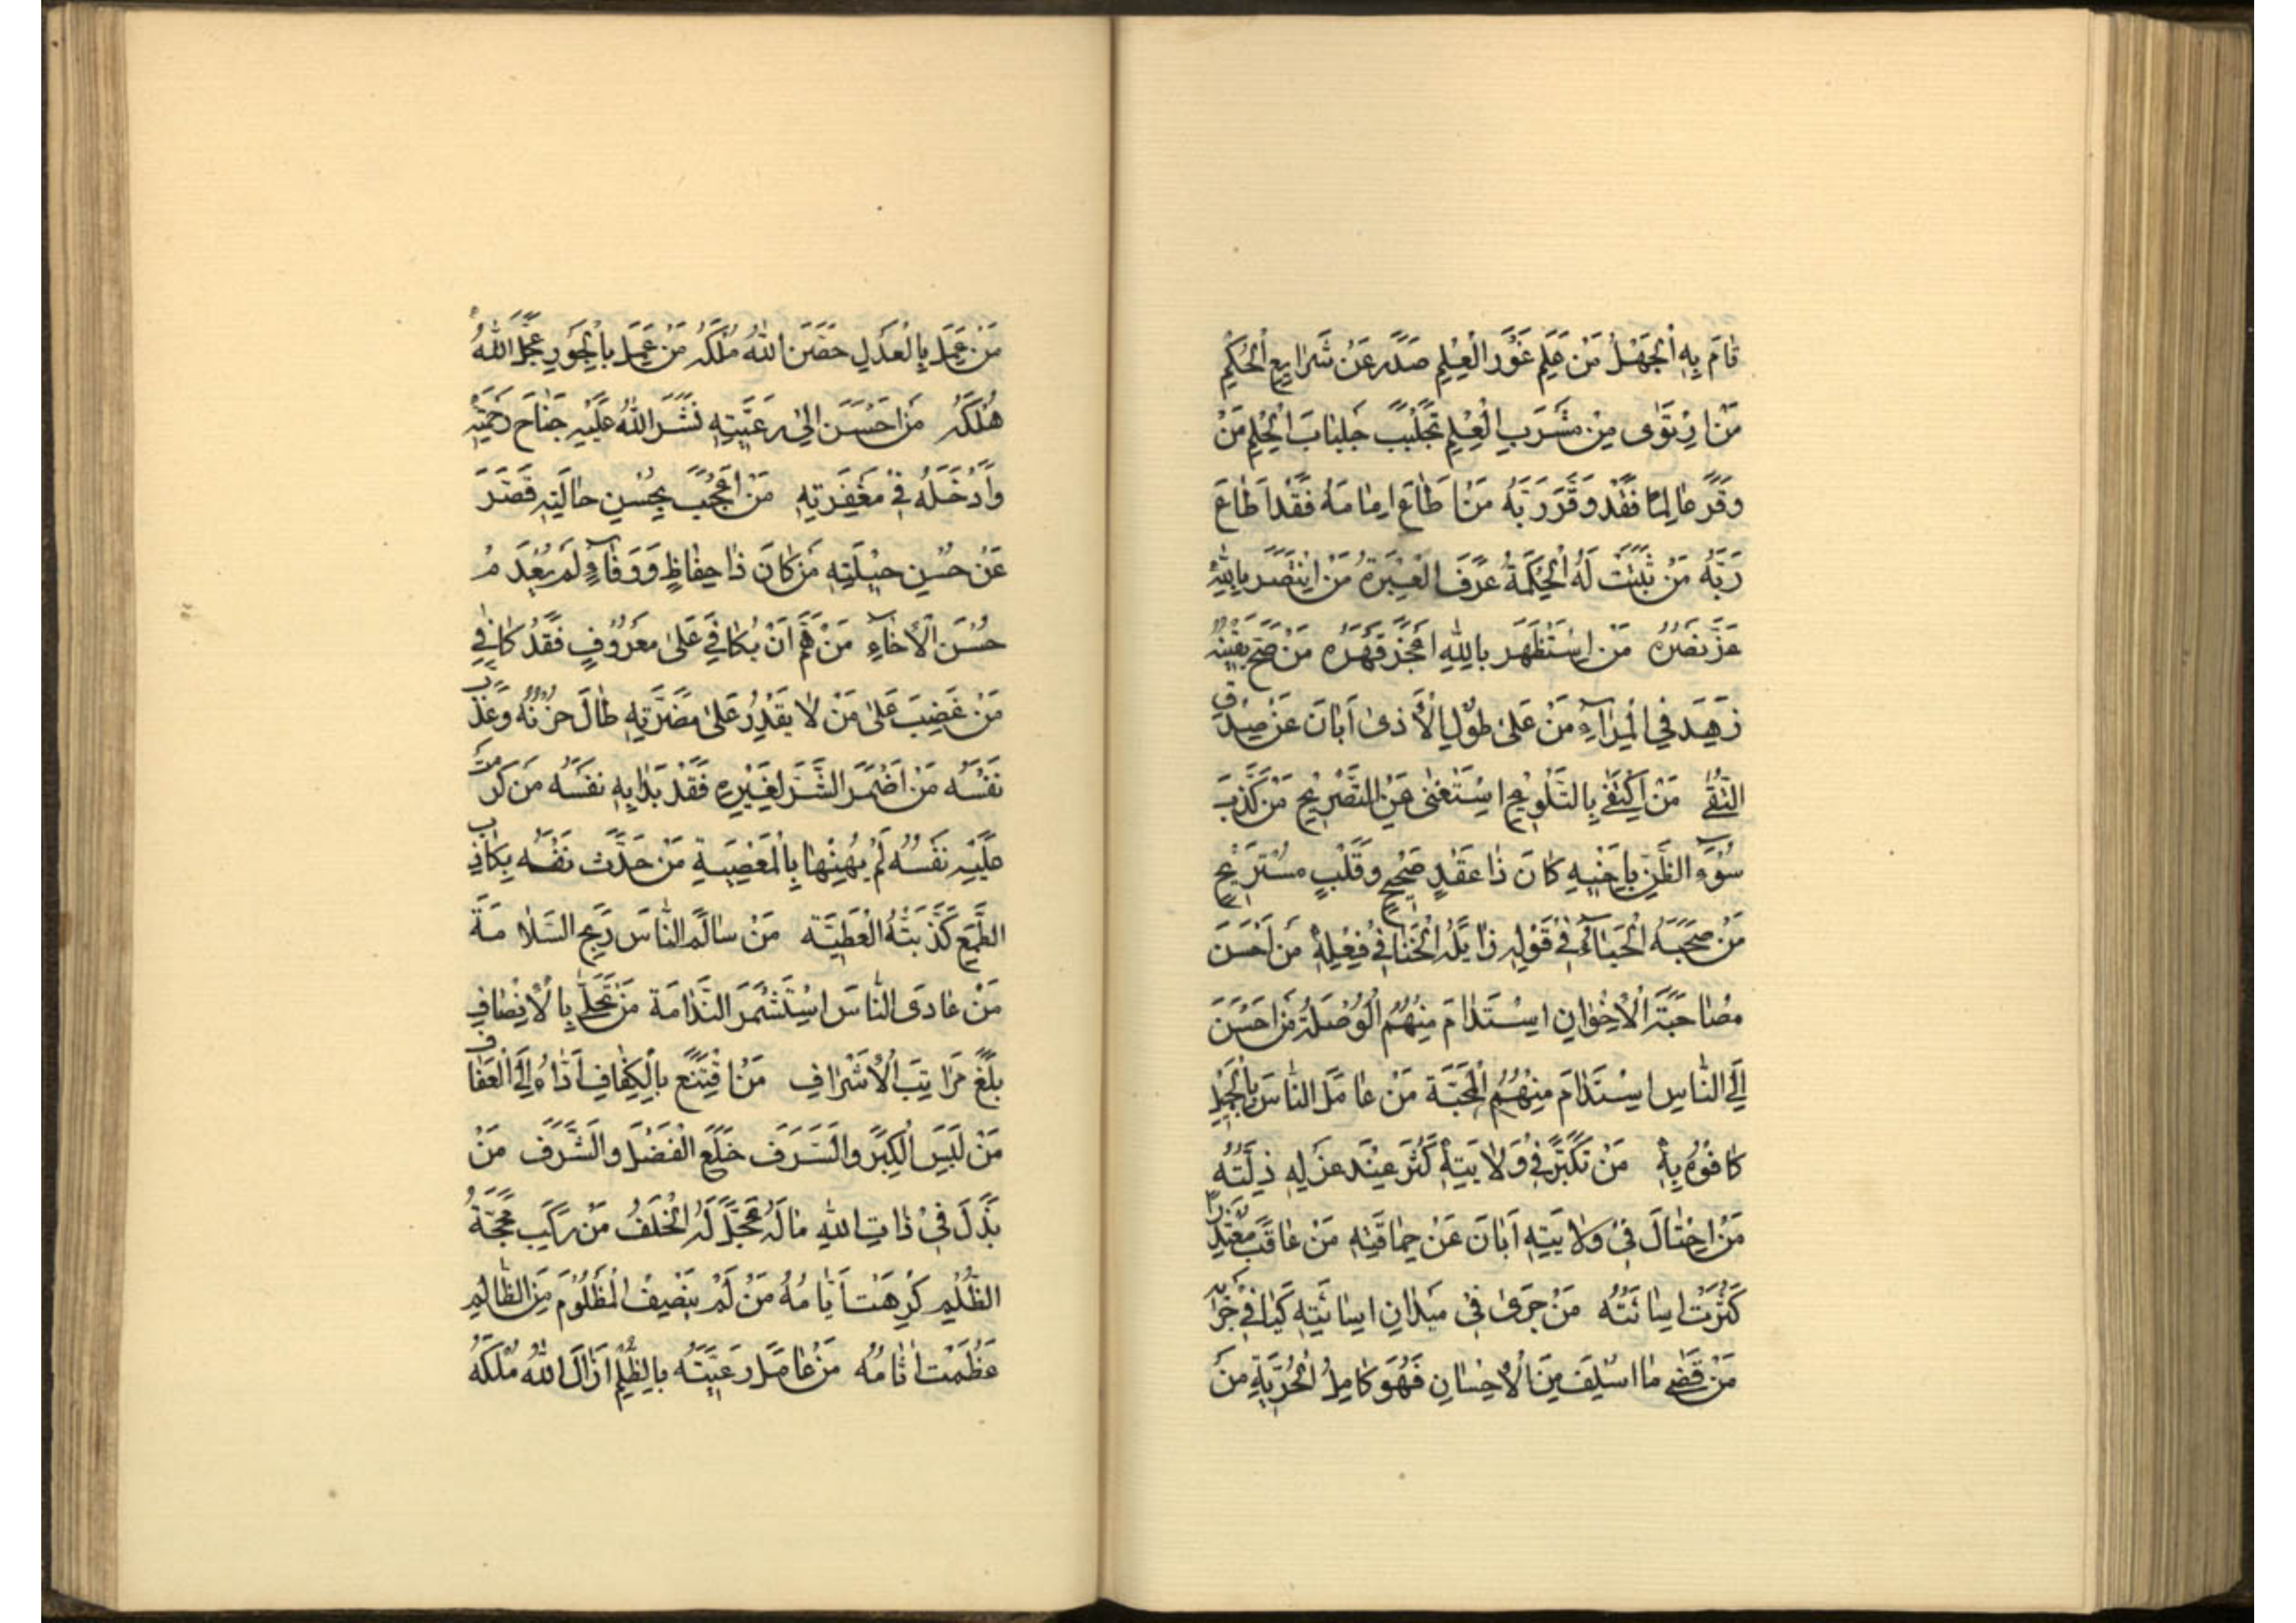 قَامَ بِهِ الْجَهْلُ مَنْ عَلِمَ غَوْرَ الْعِلْمِ صَدَرَ عَنْ شَرَايِعِ الْحُكْمِ
مَنْ ارْتَوٰى مِنْ مَشْرَبِ الْعِلْمِ تَجَلْبَبَ جَلْبَابَ الْحِلْمِ مَنْ
وَقَّرَ عَالِمًا فَقَدْ وَقَّرَ رَبَّهُ مَنْ اَطَاعَ اِمَامَهُ فَقَدْ اَطَاعَ
رَبَّهُ مَنْ ثَبَتَتْ لَهُ الْحِكْمَةُ عَرَفَ الْعِبْرَةَ مَنْ اِنْتَصَرَ بِاللّٰهِ
عَزَّ نَصْرُهُ مَنِ اسْتَظْهَرَ بِاللّٰهِ اَعْجَزَ قَهْرُهُ مَنْ صَحَّ يَقِينُهُ
زَهِدَ فِي الْمِرَآءِ مَنْ عَلٰى طُولِ الْأَذٰى اَبَانَ عَنْ صِدْقِ
التُّقٰى مَنْ اِكْتَفٰى بِالتَّلْوِيحِ اسْتَغْنٰى عَنِ التَّصْرِيحِ مَنْ كَذَّبَ
سُوۤءَ الظَّنِّ بِاَخِيهِ كَانَ ذَا عَقْدٍ صَحِيحٍ وَقَلْبٍ مُسْتَرِيحٍ
مَنْ صَحِبَهُ الْحَيَآءُ فِي قَوْلِهِ زَايَلَهُ الْخَنَا فِي فِعْلِهِ مَنْ اَحْسَنَ
مُصَاحَبَةَ الْاِخْوَانِ اسْتَدَامَ مِنْهُمُ الْوُصْلَةَ مَنْ اَحْسَنَ
اِلَى النَّاسِ اسْتَدَامَ مِنْهُمُ الْمَحَبَّةَ مَنْ عَامَلَ النَّاسَ بِالْجَمِيلِ
كَافَوُهُ بِهِ مَنْ تَكَبَّرَ فِي وَلَايَتِهِ كَثُرَ عِنْدَ عَزْلِهِ ذِلَّتُهُ
مَنْ اخْتَالَ فِي وَلَايَتِهِ اَبَانَ عَنْ حِمَاقَتِهِ مَنْ عَاقَبَ مُعْتَذِرًا
كَثُرَتْ اِسَائَتُهُ مَنْ جَرٰى فِي مَيْدَانِ اِسَائَتِهِ كَبَا فِي جَرْيِهِ
مَنْ قَضٰى مَا اُسْلِفَ مِنَ الْاِحْسَانِ فَهُوَ كَامِلُ الْحُرِّيَّةِ مَنْ
مَنْ عَمِلَ بِالْعَدْلِ حَصَّنَ اللّٰهُ مُلْكَهُ مَنْ عَمِلَ بِالْجَوْرِ عَجَّلَ اللّٰهُ
هُلْكَهُ مَنْ اَحْسَنَ اِلٰى رَعِيَّتِهِ نَشَرَ اللّٰهُ عَلَيْهِ جَنَاحَ رَحْمَتِهِ
وَاَدْخَلَهُ فِي مَغْفِرَتِهِ مَنْ اُعْجِبَ بِحُسْنِ حَالَتِهِ قَصَّرَ
عَنْ حُسْنِ حِيلَتِهِ مَنْ كَانَ ذَا حِفَاظٍ وَوَفَآءٍ لَمْ يَعْدَمْ
حُسْنَ الْاِخَآءِ مَنْ هَمَّ اَنْ يُكَافِيَ عَلٰى مَعْرُوفٍ فَقَدْ كَافٰى
مَنْ غَضِبَ عَلٰى مَنْ لَا يَقْدِرُ عَلٰى مَضَرَّتِهِ طَالَ حُزْنُهُ وَعَذَّبَ
نَفْسَهُ مَنْ اَضْمَرَ الشَّرَّ لِغَيْرِهِ فَقَدْ بَدَا بِهِ نَفْسَهُ مَنْ كَرُمَتْ
عَلَيْهِ نَفْسُهُ لَمْ يُهِنْهَا بِالْمَعْصِيَةِ مَنْ حَدَّثَ نَفْسَهُ بِكَاذِبِ
الطَّمَعِ كَذَّبَتْهُ الْعَطِيَّةُ مَنْ سَالَمَ النَّاسَ رَبِحَ السَّلَامَةَ
مَنْ عَادَى النَّاسَ اسْتَثْمَرَ النَّدَامَةَ مَنْ تَحَلّٰى بِالْاِنْصَافِ
بَلَغَ مَرَاتِبَ الْاَشْرَافِ مَنْ اقْتَنَعَ بِالْكِفَافِ اَدَّاهُ اِلَى الْعَفَافِ
مَنْ لَبِسَ الْكِبْرَ وَالسَّرَفَ خَلَعَ الْفَضْلَ وَالشَّرَفَ مَنْ
بَذَلَ فِي ذَاتِ اللّٰهِ مَالَهُ عَجَّلَ لَهُ الْخَلَفُ مَنْ رَكِبَ مَحَجَّةَ
الظُّلْمِ كَرُهَتْ اَيَّامُهُ مَنْ لَمْ يُنْصِفِ الْمَظْلُومَ مِنَ الظَّالِمِ
عَظُمَتْ اٰثَامُهُ مَنْ عَامَلَ رَعِيَّتَهُ بِالظُّلْمِ اَزَالَ اللّٰهُ مُلْكَهُ